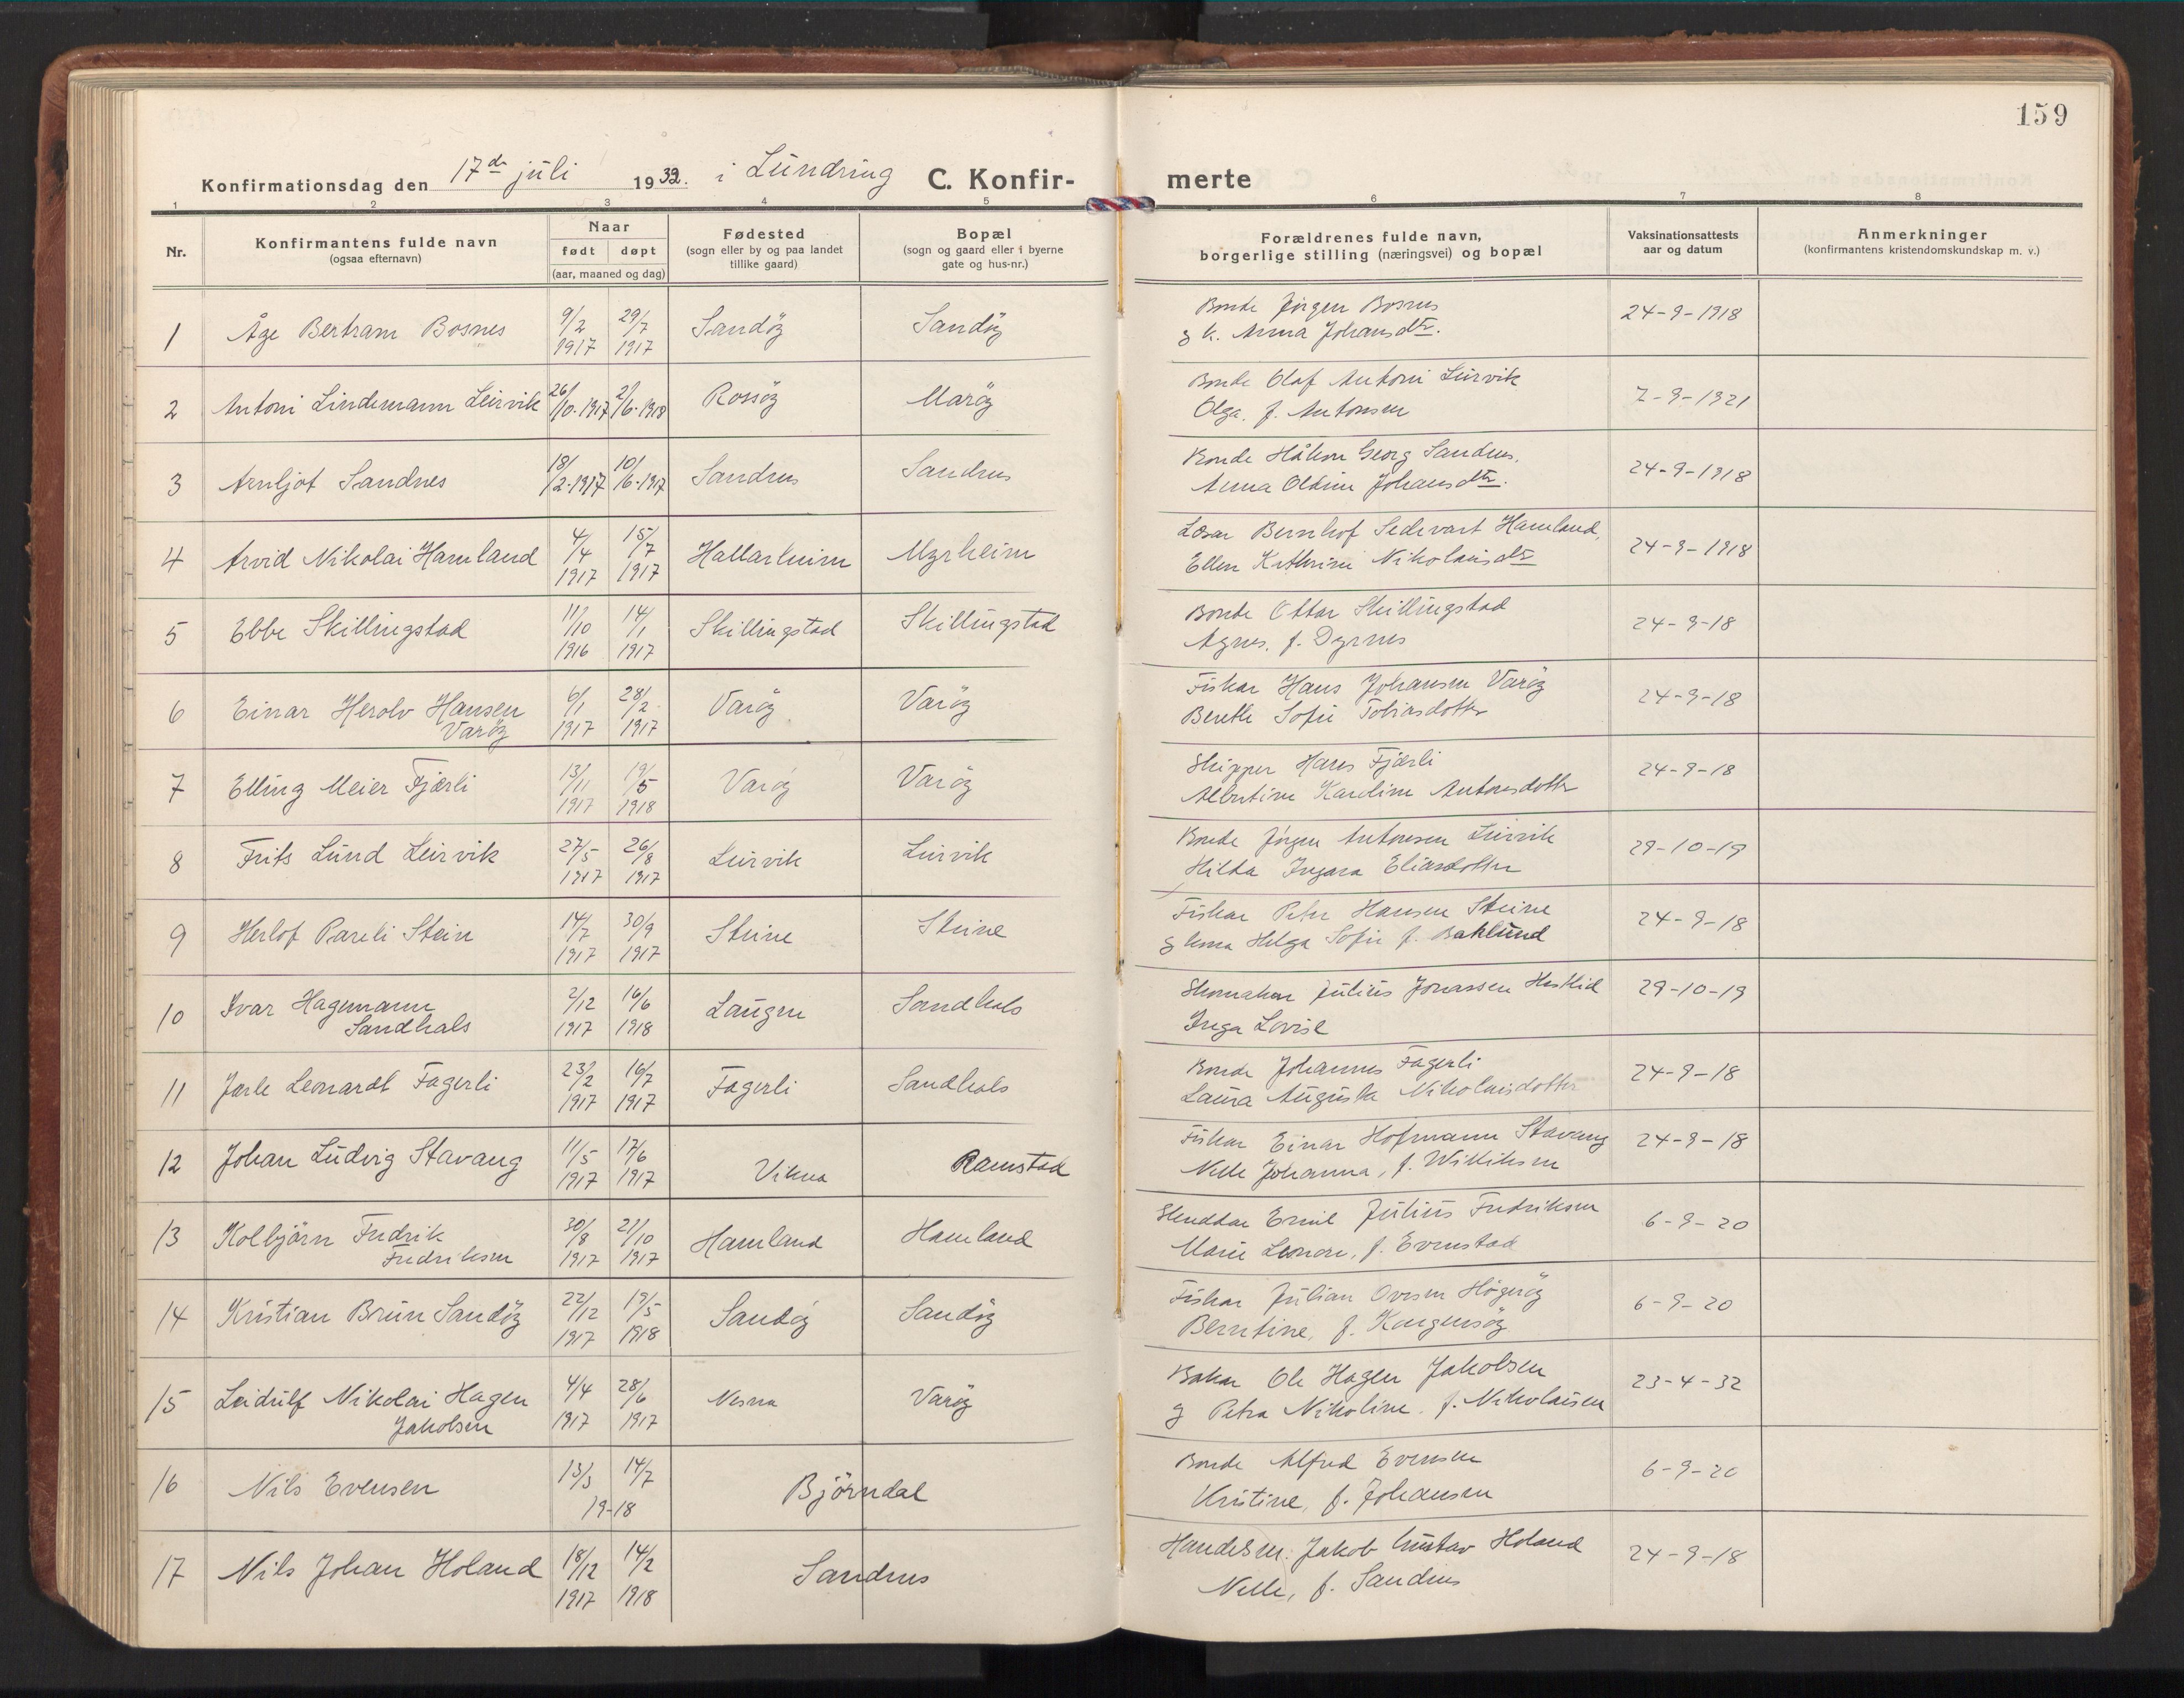 159
Konfirmationsdag den 17de juli 1932. i Lundring C. Konfirmerte
1 2 3 4 5 6 7 8
Nr. Konfirmantens fulde navn (ogsaa efternavn) Naar født døpt (aar, maaned og dag) Fødested (sogn eller by og paa landet tillike gaard) Bopæl (sogn og gaard eller i byerne gate og hus-nr.) Forældrenes fulde navn, borgerlige stilling (næringsvei) og bopæl Vaksinationsattests aar og datum Anmerkninger (konfirmantens kristendomskundskap m. v.)
1 Åge Bertram Bosnes 9/2 1917 29/7 1917 Sandöy Sandöy Bonde Jørgen Bosnes
g k. Anna Johansdtr. 24-9-1918
2 Antoni Lindemann Leirvik 26/10-1917 2/6-1918 Rossöy Maröy Bonde Olaf Antoni Leirvik
Olga. f. Antonsen 7-9-1921
3 Arnljot Sandnes 18/2-1917 10/6-1917 Sandnes Sandnes Bonde Håkon Georg Sandnes.
Anna Oldine Johansdtr. 24-9-1918
4 Arvid Nikolai Hamland 4/4 1917 15/7 1917 Hallarheim Myrheim Løsar Bernhof Sedevart Hamland,
Ellen Kathrine Nikolaisdtr 24-9-1918
5 Ebbe Skillingstad 11/10 1916 14/1 1917 Skillingstad Skillingstad Bonde Ottar Skillingstad
Agnes. f. Dyrnes 24-9-18
6 Einar Herolv Hansen
Varöy 6/1 1917 28/2 1917 Varöy Varöy Fiskar Hans Johansen Varöy
Berethe Sofie Tobiasdotter 24-9-18
7 Elling Meier Fjærli 13/11 1917 19/5 1918 Varöy Varöy Skipper Hans Fjærli
Albertine Karoline Antonsdotter 24-9-18
8 Frits Lund Leirvik 27/5 1917 26/8 1917 Leirvik Leirvik Bonde Jørgen Antonsen Leirvik
Hilda Ingara Eliasdotter 29-10-19
9 Herlof Pareli Stein 14/7 1917 30/9 1917 Steine Steine Fiskar Peter Hansen Steine
g kona Helga Sofie f. Baklund 24-9-18
10 Ivar Hagemann
Sandhals 2/12 1917 16/6 1918 Laugen Sandhals Skomakar Julius Jonassen
Inga Lovise 29-10-19
11 Jarle Leonardt Fagerli 23/2 1917 16/7 1917 Fagerli Sandhals Bonde Johannes Fagerli
Laura Augusta Nikolaisdotter 24-9-18
12 Johan Ludvig Stavang 11/5 1917 17/6 1917 Vikna Ramstad Fiskar Einar Hofmann Stavang
Nelle Johanna, f. Williksen 24-9-18
13 Kolbjörn Fredrik
Fredriksen 30/8 1917 21/10 1917 Hamland Hamland Skreddar Emil Julius Fredriksen
Marie Leonore, f. Evenstad 6-9-20
14 Kristian Brun Sandöy 22/12 1917 19/5 1918 Sandöy Sandöy Fiskar Julian Ovesen Högeröy
Berntine, f. Kongensöy 6-9-20
15 Leidulf Nikolai Hagen
Jakobsen 4/4 1917 28/6 1917 Nesna Varöy Bakar Ole Hagen Jakobsen
g Petra Nikoline. f. Nikolaisen 23-4-32
16 Nils Evensen 13/3 14/7 19-18 Björndal Bonde Alfred Evensen
Kristine, f. Johansen 6-9-20
17 Nils Johan Holand 18/12 1917 14/2 1918 Sandnes Handelsm. Jakob Gustav Holand
Nelle, f. Sandnes 24-9-18